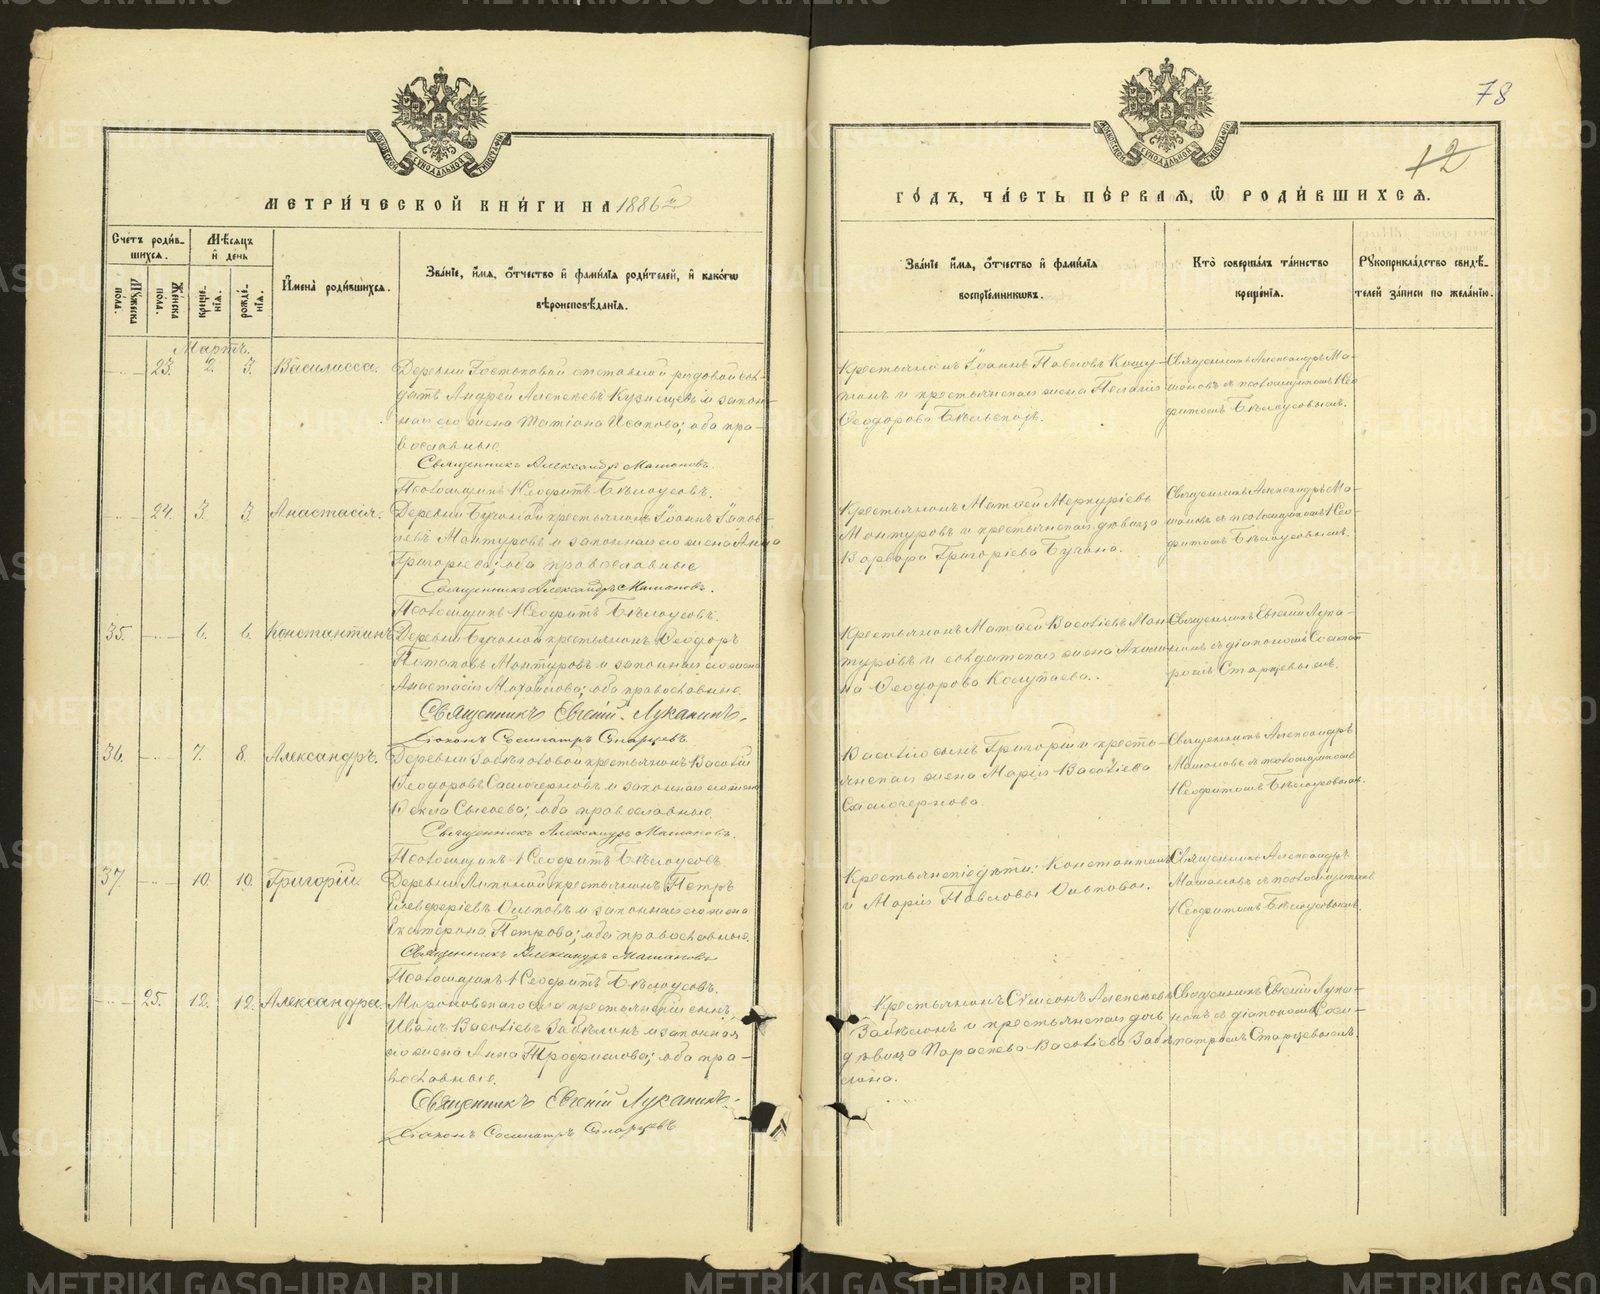 METRIKI.GASO-URAL.RU
78
12
МОСКОВСКОЙ СѴНОДАЛЬНОЙ ТИПОГРАФІИ
МОСКОВСКОЙ СѴНОДАЛЬНОЙ ТИПОГРАФІИ
МЕТРИ́ЧЕСКОЙ КНИ́ГИ НА 1886й
ГО́ДЪ, ЧА́СТЬ ПЕ́РВАЯ, Ѿ РОДИ́ВШИХСЯ.
Сче́тъ роди́в-
шихся.
Мѣ́сяцъ
и҆ де́нь
Мꙋ́жеска
пола.
Же́нска
пола.
креще́-
нїя.
рожде́-
нїя.
И҆мена̀ роди́вшихся.
Зва́нїе, и҆́мя, ѻ҆́тчество и҆ фами́лїя роди́телей, и҆ како́гѡ
вѣроисповѣ́данїя.
Зва́нїе, и҆́мя, ѻ҆́тчество и҆ фами́лїя
воспрїе́мникѡвъ.
Кто̀ соверша́лъ та́инство
креще́нїя.
Рꙋкоприкла́дство свидѣ́-
телей за́писи по жела́нїю.
Мартъ.
23. 2. 3. Василисса.
отставной рядовой сол-
датъ Андрей Алексѣевъ Кузнецовъ и закон-
ная его жена Татіана Исакова; оба пра-
вославные.
Священникъ Александръ
Псаломщикъ Неофитъ Бѣлоусовъ.
Крестьянинъ Іоаннъ Павловъ
и крестьянская жена Пелагія
Ѳеодорова
Священникъ Александръ
съ псаломщикомъ Нео-
фитомъ Бѣлоусовымъ.
24. 3. 3. Анастасія.
Деревни крестьянинъ Іоаннъ Іаков-
левъ Мантуровъ и законная его жена Анна
Григорьева; оба православные
Священникъ Александръ
Псаломщикъ Неофитъ Бѣлоусовъ.
Крестьянинъ Матѳей Меркуріевъ
Мантуровъ и крестьянская дѣвица
Варвара Григоріева
Священникъ Александръ
съ псаломщикомъ Нео-
фитомъ Бѣлоусовымъ.
35. 6. 6. Константинъ
Деревни крестьянинъ Ѳеодоръ
Потаповъ Мантуровъ и законная его жена
Анастасія Михайлова; оба православные.
Священникъ Евгеній Луканинъ.
Діаконъ Сосипатръ Старцевъ
Крестьянинъ Матѳей Васильевъ Ман-
туровъ и солдатская жена
Ѳеодорова
Священникъ Евгеній Лука-
нинъ съ діакономъ Сосипат-
ромъ Старцевымъ.
36. 7. 8. Александръ.
Деревни крестьянинъ Василій
Ѳеодоровъ Самочерновъ и законная его жена
Ѳекла Сысоева; оба православные.
Священникъ Александръ
Псаломщикъ Неофитъ Бѣлоусовъ
Василіе сынъ Григорій и кресть-
янская жена Марія Васильева
Самочернова.
Священникъ Александръ
съ псаломщикомъ
Неофитомъ Бѣлоусовымъ.
37. 10. 10. Григорій.
Деревни крестьянинъ Петръ
Елевферіевъ и законная его жена
Екатерина Петрова; оба православные.
Священникъ Александръ
Псаломщикъ Неофитъ Бѣлоусовъ.
Крестьянскіе дѣти: Константинъ
и Марія Павловы
Священникъ Александръ
съ псаломщикомъ
Неофитомъ Бѣлоусовымъ.
25. 12. 12. Александра.
села крестьянскій сынъ
Иванъ Васильевъ Забѣлинъ и законная
его жена Анна Трофимова; оба пра-
вославные.
Священникъ Евгеній Луканинъ.
Діаконъ Сосипатръ Старцевъ
Крестьянинъ Сѵмеонъ Алексѣевъ
Забѣлинъ и крестьянская дочь
дѣвица Параскева Васильева Забѣ-
лина.
Священникъ Евгеній Лука-
нинъ съ діакономъ Соси-
патромъ Старцевымъ.